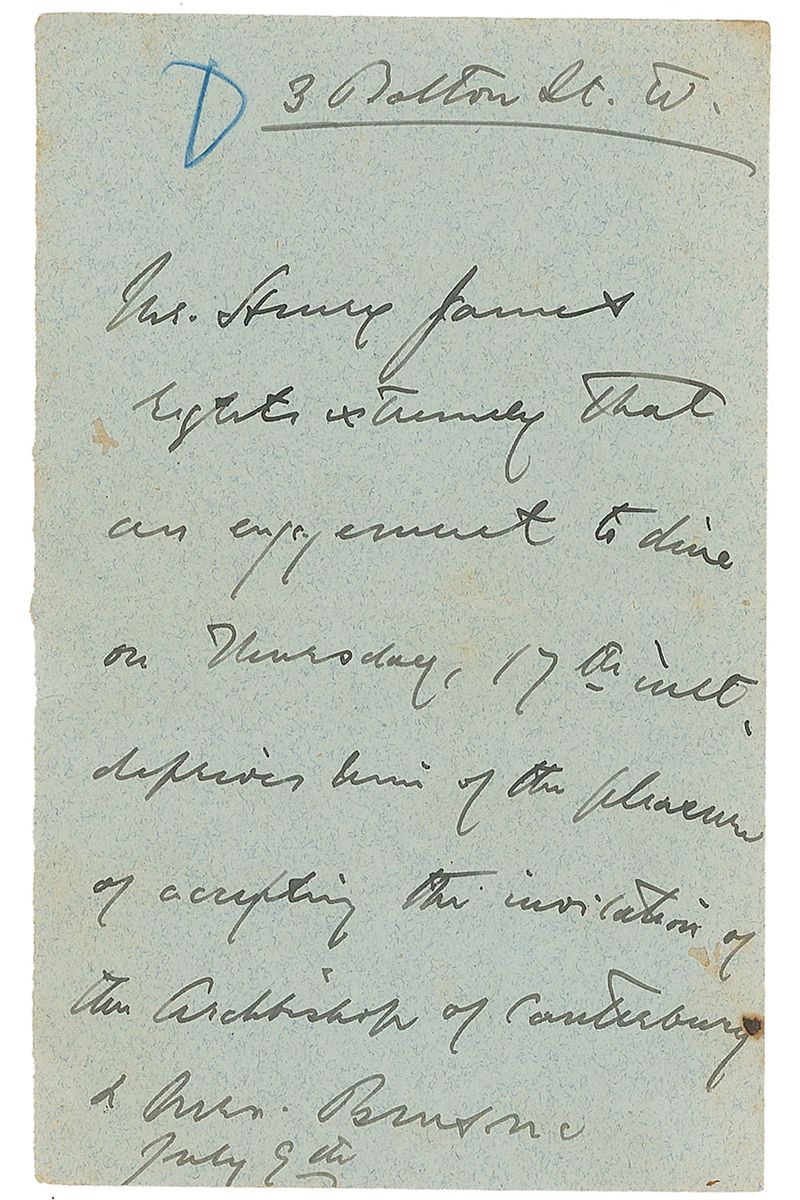 D 3 Bolton St. W.
Mr. Henry James
regrets extremely that
an engagement to dine
on Thursday, 17th inst.
deprives him of the pleasure
of accepting the invitation of
the Archbishop of Canterbury
& Mrs. Benson
July 9th